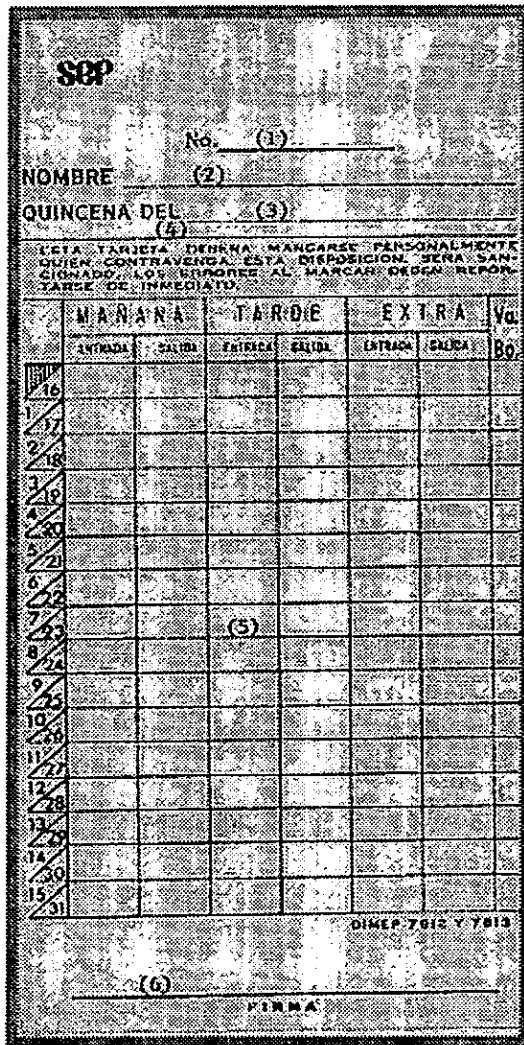 SEP
No. (1)
NOMBRE (2)
QUINCENA DEL (3)
(4)
ESTA TARJETA DEBERA MARCARSE PERSONALMENTE
QUIEN CONTRAVENGA ESTA DISPOSICION, SERA SAN-
CIONADO, LOS ERRORES AL MARCAR DEBEN REPOR-
TARSE DE INMEDIATO.
MAÑANA TARDE EXTRA Vo.
ENTRADA SALIDA ENTRADA SALIDA ENTRADA SALIDA Bo.
16
1 17
2 18
3 19
4 20
5 21
6 22
7 23 (5)
8 24
9 25
10 26
11 27
12 28
13 29
14 30
15 31
DIMEP 7612 Y 7613
(6)
FIRMA